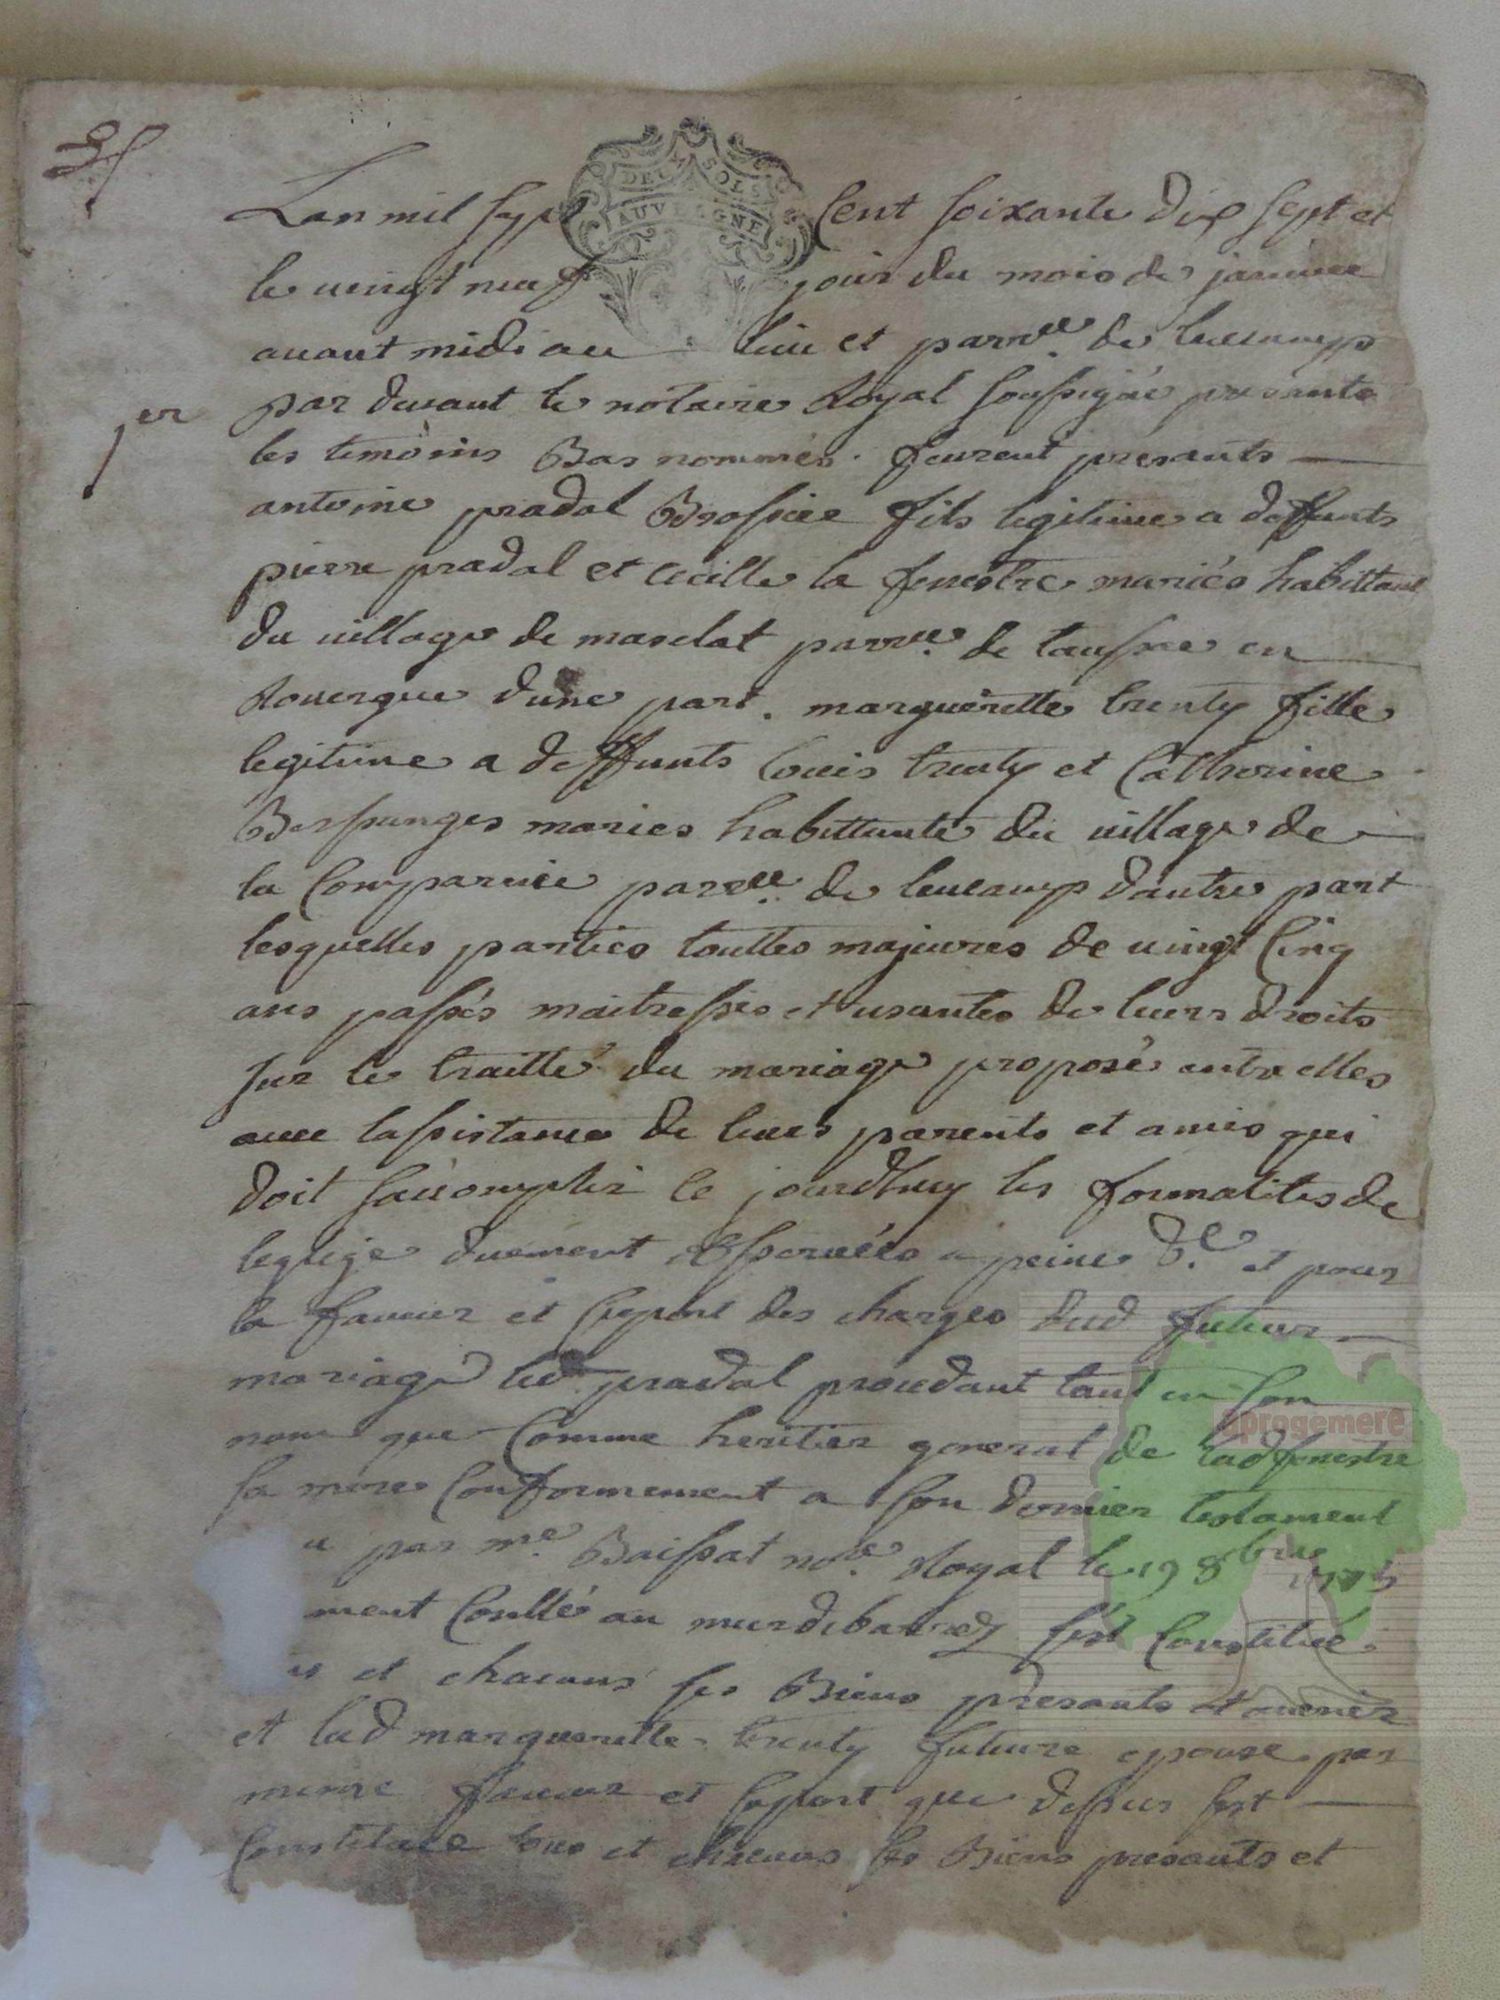 35
DEUX SOLS
AUVERGNE
Lan mil sept cent soixante dix sept et
le vingt neuf jour du mois de janvier
avant midi au lieu et parr.lle de leucamp
1er
par devant le notaire Royal soussigné presants
les temoins Bas nommés. feurent presants
antoine pradal Brassier fils legitime a deffunts
pierre pradal et cecille la fenestre mariés habittant
du village de masclat parr.lle de taussac en
Rouergue dune part. margueritte trenty fille
legitime a deffunts Louis trenty et Catherine
mariés habittante du village de
la parr.lle de leucamp dautre part
lesquelles parties touttes majeures de vingt cinq
ans passés maitresses et usantes de leurs droits
sur le traitté du mariage proposé entre elles
avec lassistance de leurs parents et amis qui
doit saccomplir ce jourdhuy les formalites de
leglize duement observées a peine &.e et pour
la faveur et suport des charges dud futeur
mariage led pradal procedant tant en son
nom que comme heritier general de lad fenestre
sa mere conformement a son dernier testament
par m.e Baissat no.re Royal le 19 8bre
ment conllé au murdebarrez sest constitué
et chacuns ses Biens presants et avenir
et lad margueritte trenty future epouse par
meme faveur et suport que dessus sest
constituée tous et chacuns ses Biens presants et
aprogemere